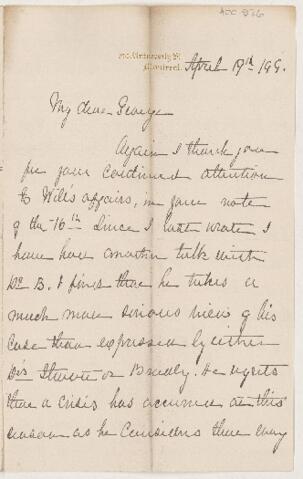 ACC 826
University St
Montreal
April 19th 199.
My dear George
Again I thank you
for your continued attention
to Will's affairs, in your note
of the 16th Since I last wrote I
have had another talk with
Dr B. & find that he takes a
much more serious view of his
case than expressed by either
Drs Stewart or Buddy. He regrets
that a crisis has occurred at this
season as he considers there every